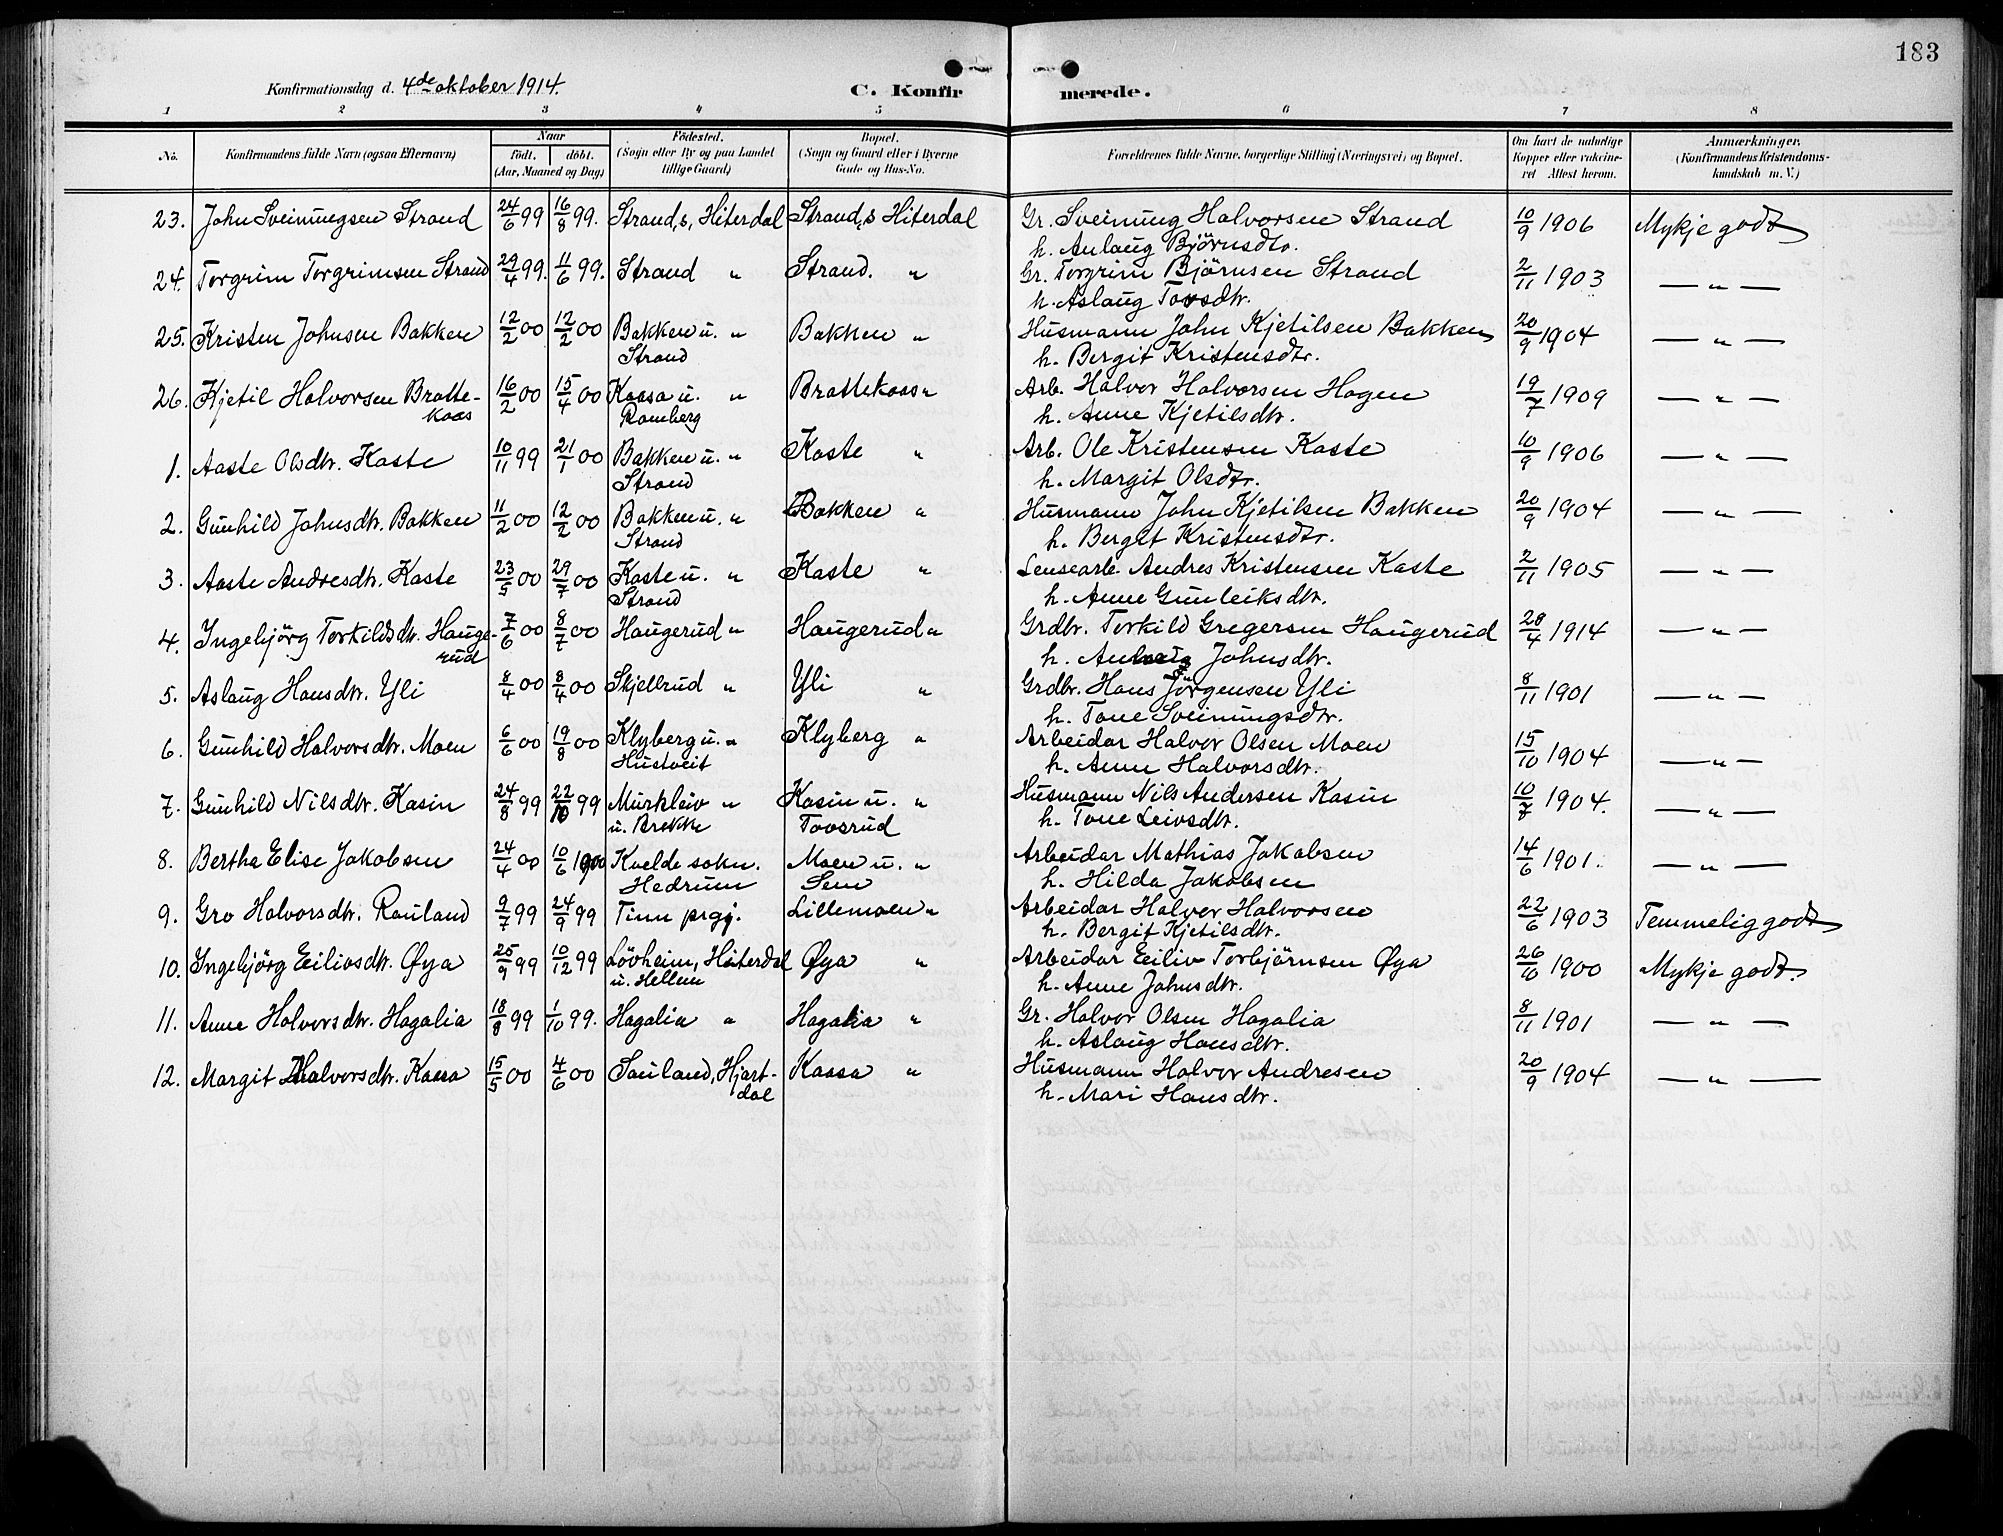 183
Konfirmationsdag d. 4de oktober 1914.
C. Konfirmerede.
1 2 3 4 5 6 7 8
No. Konfirmandens fulde Navn (ogsaa Efternavn) Naar født. døbt. (Aar, Maaned og Dag) Fødested. (Sogn eller By og paa Landet tillige Gaard) Bopæl. (Sogn og Gaard eller i Byerne Gade og Hus-No. Forældrenes fulde Navne, borgerlige Stilling (Næringsvei) og Bopæl. Om havt de naturlige Kopper eller vaccineret Attest herom. Anmærkninger. (Konfirmandens Kristendomskundskab m. V.)
23. John Sveinungsen Strand 24/6 99 16/8 99. Strand, s, Hiterdal Strand, s Hiterdal Gr. Sveinung Halvorsen Strand 10/9 1906 Mykje godt
h. Anlaug Björnsdtr.
24. Torgrim Torgrimsen Strand 29/4 99. 11/6 99. Strand " Strand. " Gr. Torgrim Björnsen Strand 2/11 1903 — " —
h. Aslaug Tovsdtr.
25. Kristen Johnsen Bakken 12/2 00 12/2 00 Bakken u. " Bakken " Husmann John Kjetilsen Bakken 20/9 1904 — " —
Strand h. Bergit Kristensdtr.
26. Kjetil Halvorsen Bratte- 16/2 00 15/4 00 Kaasa u. " Brattekaas " Arb. Halvor Halvorsen Hagen 19/7 1909 — " —
kaas Ramberg h. Anne Kjetilsdtr.
1. Aaste Olsdtr. Kaste 10/11 99 21/1 00 Bakken u. " Kaste " Arb. Ole Kristensen Kaste 10/9 1906 — " —
Strand h. Margit Olsdtr.
2. Gunhild Johnsdtr. Bakken 11/2 00 12/2 00 Bakken u. " Bakken " Husmann John Kjetilsen Bakken 20/9 1904 — " —
Strand h. Bergit Kristensdtr.
3. Aaste Andresdtr. Kaste 23/5 00 29/7 00 Kaste u. " Kaste " Lensearb. Andres Kristensen Kaste 2/11 1905 — " —
Strand h. Anne Gunleiksdtr.
4. Ingebjörg Torkildsdtr. Hauge- 7/6 00 8/7 00 Haugerud " Haugerud " Grdbr. Torkild Gregersen Haugerud 28/4 1914 — " —
rud h. Johnsdtr.
5. Aslaug Hansdtr. Yli 8/4 00 8/4 00 Skjellrud " Yli " Grdbr. Hans Jörgensen Yli 8/11 1901 — " —
h. Tone Sveinungsdtr.
6. Gunhild Halvorsdtr. Moen 6/6 00 19/8 00 Klyberg u. " Klyberg " Arbeidar Halvor Olsen Moen 15/10 1904 — " —
Hustveit h. Anne Halvorsdtr.
7. Gunhild Nilsdtr. Kasin 24/8 99 22/10 99 Murkleiv " Kasin u. " Husmann Nils Andersen Kasin 10/7 1904. — " —
u. Brekke Tovsrud h. Tone Leivsdtr.
8. Bertha Elise Jakobsen 24/4 00 10/6 1900 Kvelde sokn. Moen u. " Arbeidar Mathias Jakobsen 14/6 1901. — " —
Hedrum Sem h. Hilda Jakobsen
9. Gro Halvorsdtr. Rauland 9/7 99 24/9 99 Tinn prgj. Lillemoen " Arbeidar Halvor Halvorsen 22/6 1903 Temmelig godt
h. Bergit Kjetilsdtr.
10. Ingebjörg Eilivsdtr. Øya 25/9 99 10/12 99 Lövheim, Hiterdal Øya " Arbeidar Eiliv Torbjörnsen Øya 26/10 1900 Mykje godt.
u. Hellem h. Anne Johnsdtr.
11. Anne Halvorsdtr. Hagalia 18/8 99 1/10 99. Hagalia " Hagalia " Gr. Halvor Olsen Hagalia 8/11 1901 — " —
h. Aslaug Hansdtr.
12. Margit Halvorsdtr. Kaasa 15/5 00 4/6 00 Sauland, Hjart- Kaasa " Husmann Halvor Andresen 20/9 1904 — " —
dal h. Mari Hansdtr.